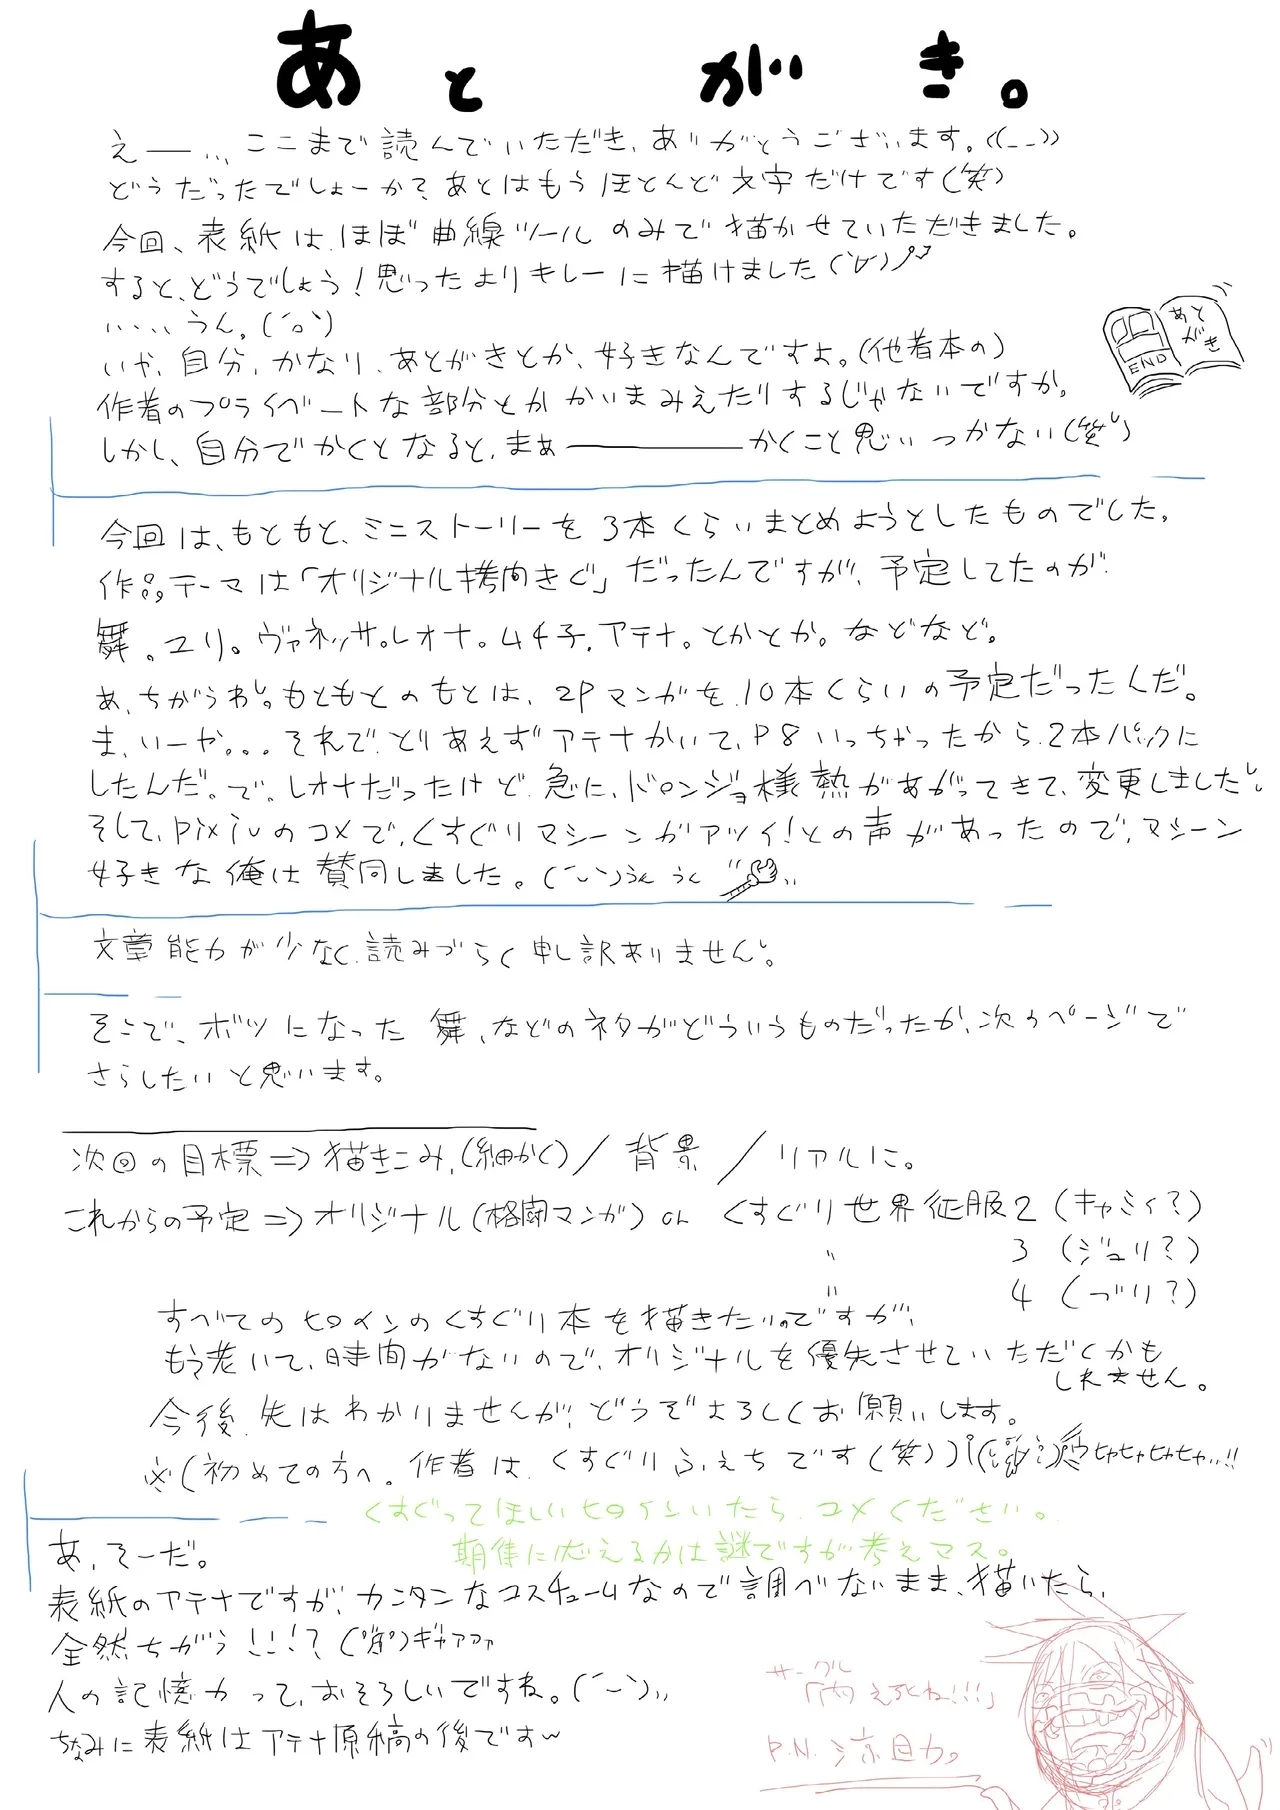 あとがき。
えー… ここまで読んでいただき、ありがとうございます。((_ _))
どうだったでしょーか?あとはもうほとんど文字だけです(笑)
今回、表紙は、ほぼ曲線ツールのみで描かせていただきました。
すると、どうでしょう!思ったよりキレーに描けました(´∀`)ノ
、、、、うん。(´o`)
いや、自分、かなり、あとがきとか、好きなんですよ。(他者本の)
作者のプライベートな部分とかかいまみえたりするじゃないですか。
しかし、自分でかくとなると、まぁーーーーかくこと思いつかない(笑)
あと
がき
END
今回は、もともと、ミニストーリーを3本くらいまとめようとしたものでした。
作品テーマは「オリジナル拷問きぐ」だったんですが、予定してたのが
舞。ユリ。ヴァネッサ。レオナ。ムチ子。アテナ。とかとか。などなど。
あ、ちがうわ。もともとのもとは、2Pマンガを、10本くらいの予定だったんだ。
ま、いーや。。。それで、とりあえずアテナかいて、P8いっちゃったから、2本パックに
したんだ。で。レオナだったけど、急に、ドロンジョ様熱があがってきて、変更しました。
そして、pixivのコメで、くすぐりマシーンがアツイ!との声があったので、マシーン
好きな俺は賛同しました。(´ー`)うん うん
文章能力が少なく、読みづらく申し訳ありません。
そこで、ボツになった舞、などのネタがどういうものだったか、次のページで
さらしたいと思います。
次回の目標⇒描きこみ、(細かく)/背景/リアルに。
これからの予定⇒オリジナル(格闘マンガ) or くすぐり世界征服2(キャミィ?)
〃 3(ジュリ?)
〃 4(ブリ?)
すべてのヒロインのくすぐり本を描きたいのですが、
もう老いて、時間がないので、オリジナルを優先させていただくかも
しれません。
今後、先はわかりませんが、どうぞよろしくお願いします。
※(初めての方へ。作者は、くすぐりふぇちです(笑))ヒャヒャヒャヒャ…!!
くすぐってほしいヒロインいたら、コメください。
期待に応えるかは謎ですが考えマス。
あ、そーだ。
表紙のアテナですが、カンタンなコスチュームなので調べないまま、描いたら、
全然ちがう!!!?(゚Д゚)ギャァァァ
人の記憶力って、おそろしいですね。(´ー`)、、
ちなみに表紙はアテナ原稿の後です〜
サークル
P.N. 涼目力。